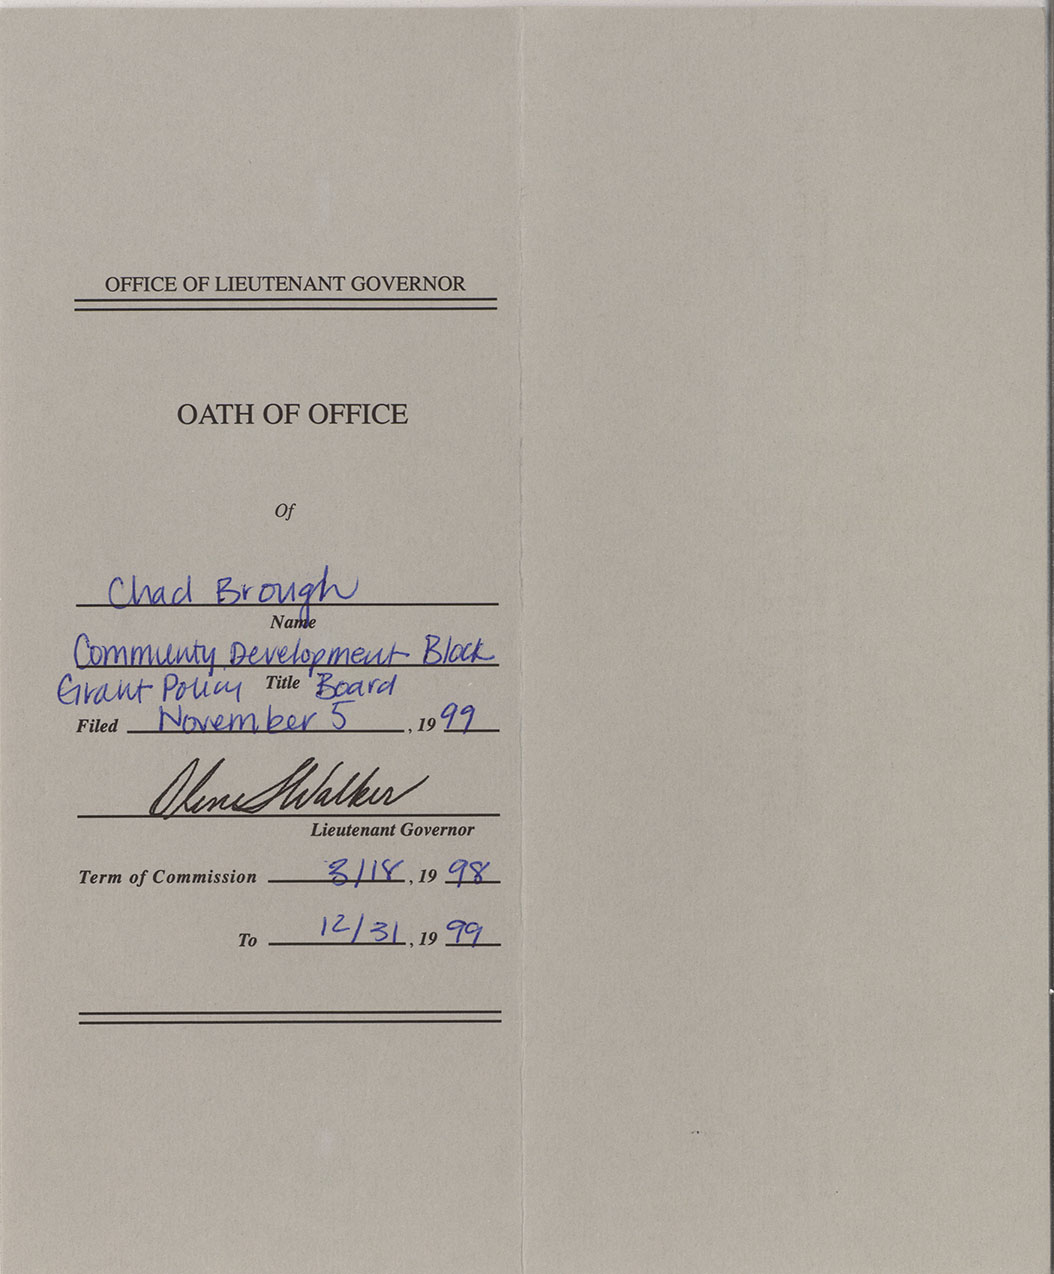 OFFICE OF LIEUTENANT GOVERNOR
OATH OF OFFICE
Of
Chad Brough
Name
Communty Development Block
Grant Policy Title Board
Filed November 5, 1999
Olene S Walker
Lieutenant Governor
Term of Commission 3/18, 1998
To 12/31, 1999